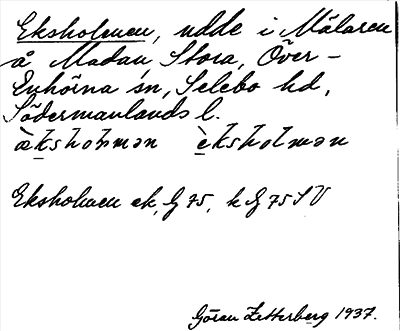 Eksholmen, udde i Mälaren
å Madan, Stora, Över-
Enhörna sn, Selebo hd,
Södermanlands l.
ὲksholmən ὲksholmən
Eksholmen ek, G 75, k G 75 SV
Göran Zetterberg 1937.